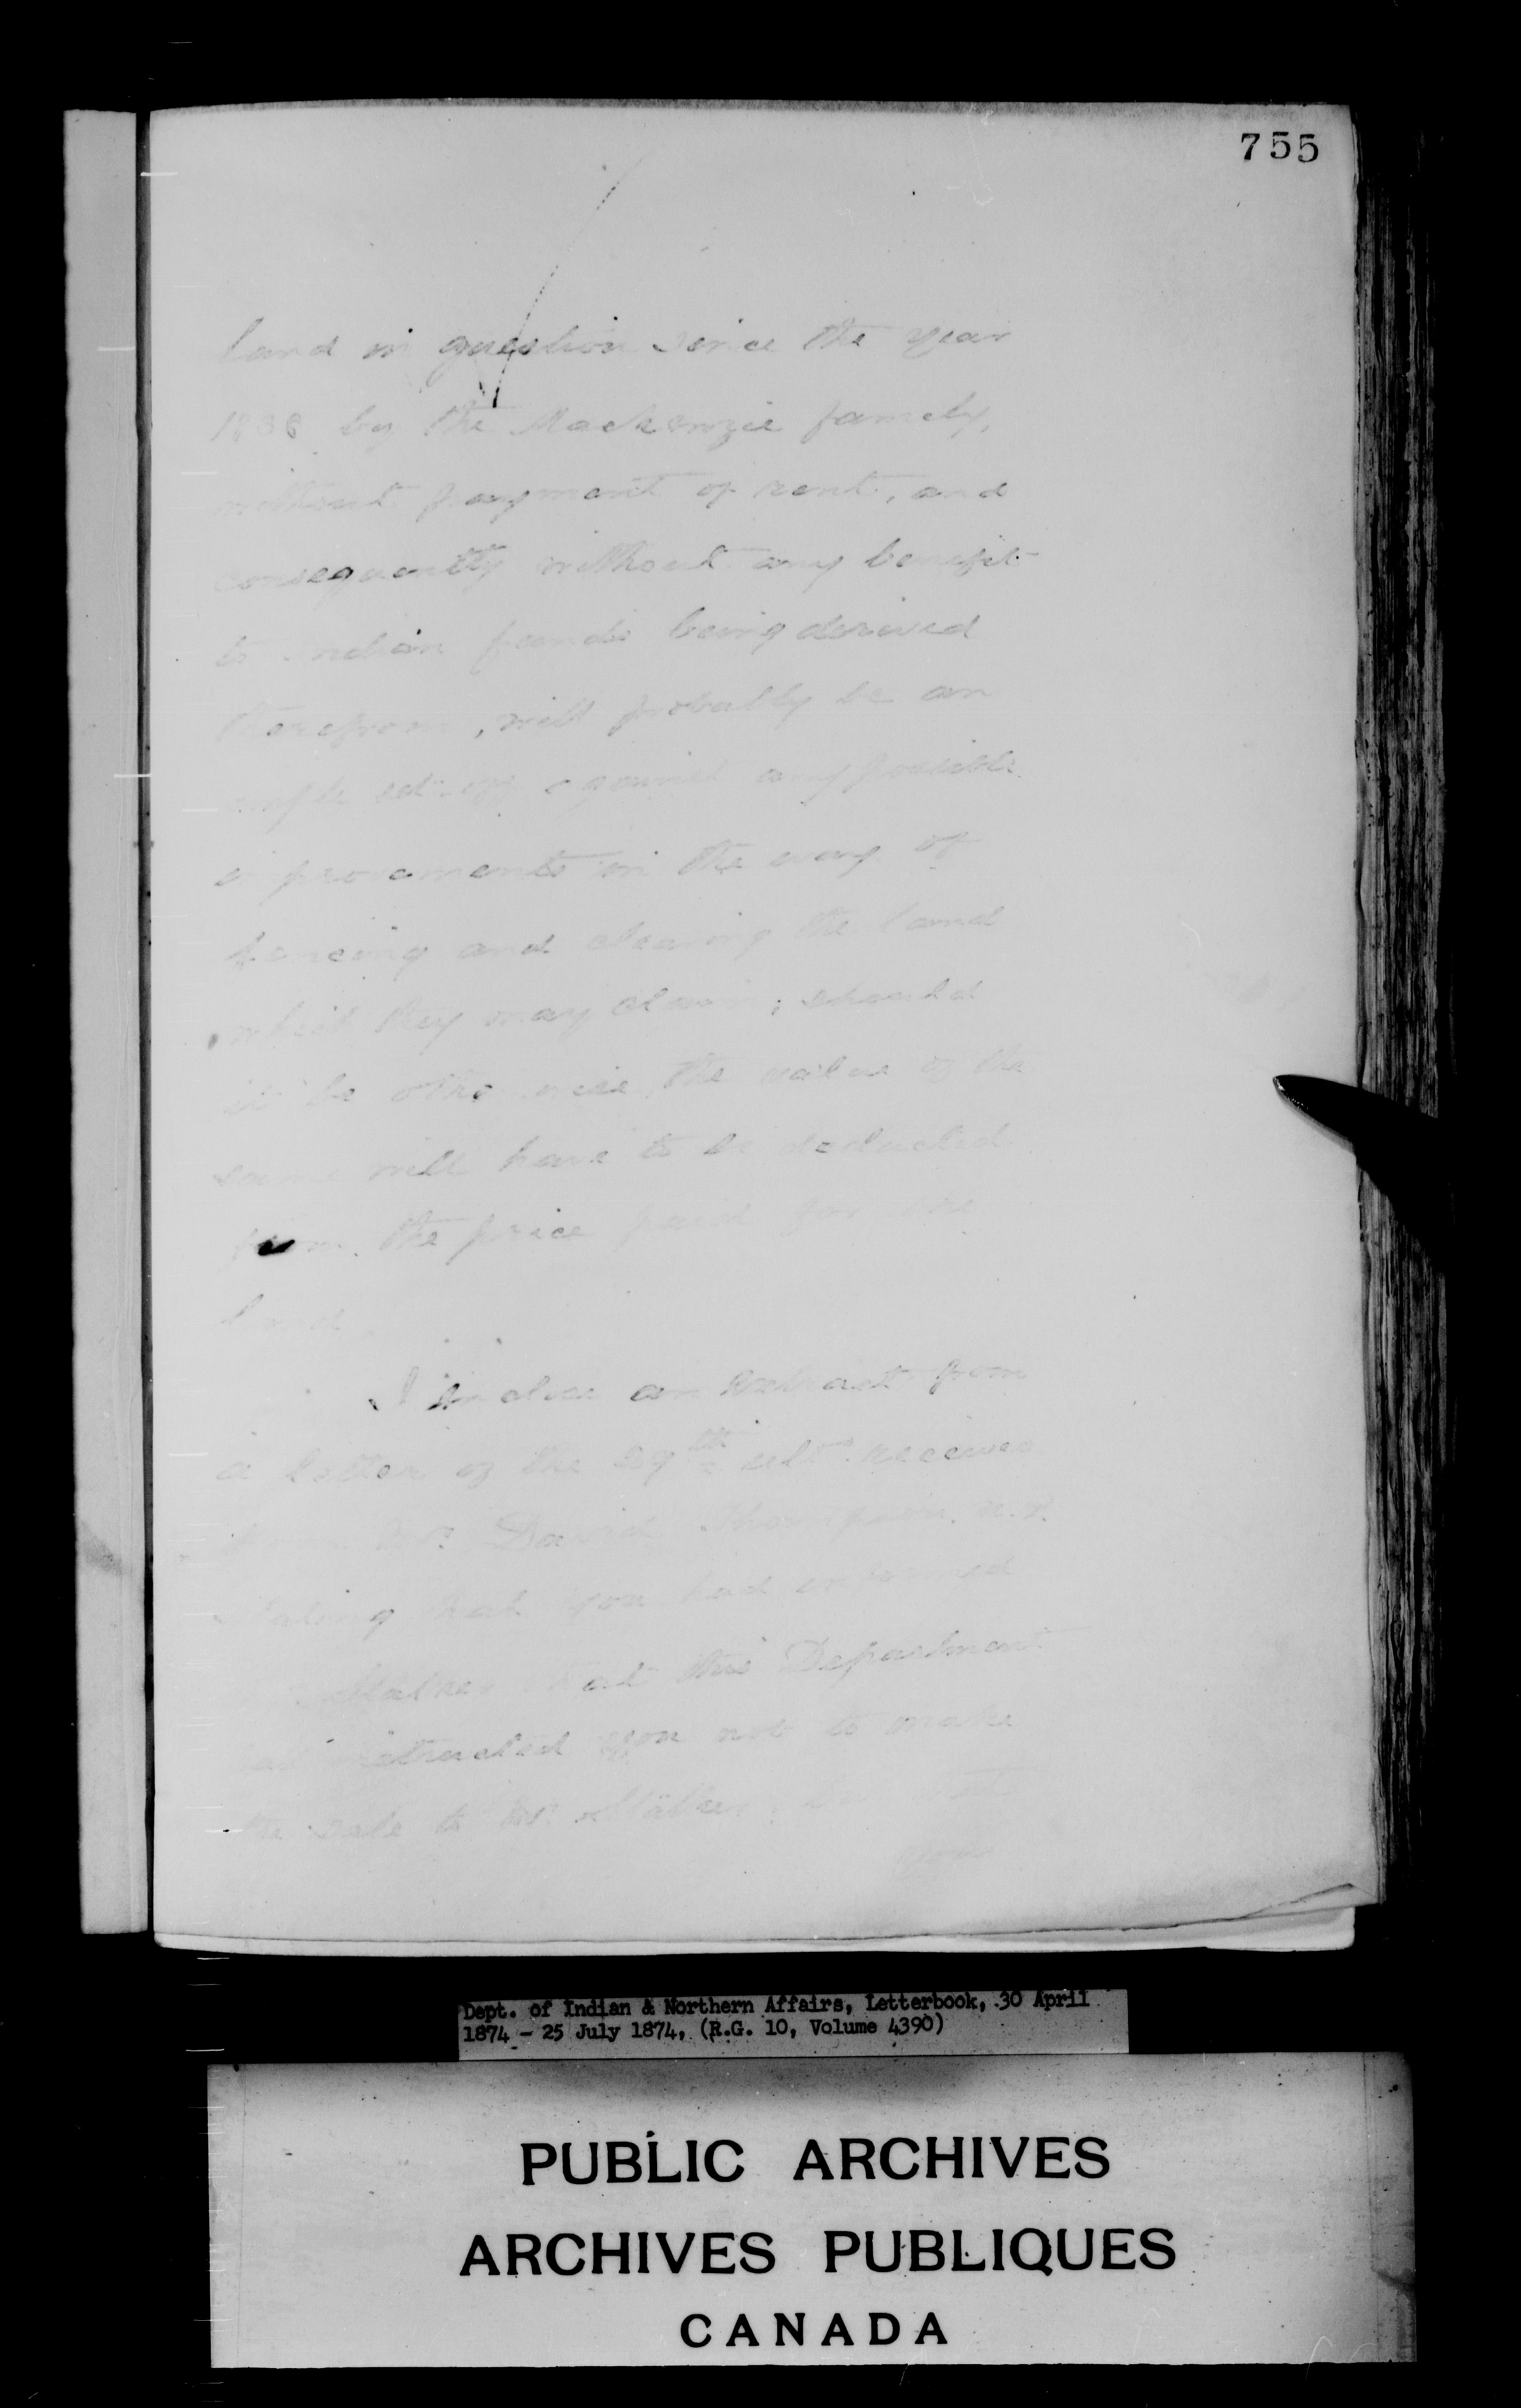 755
land in question since the year
by the Mackenzie family,
without payment of rent, and
consequently without any benefit
to Indian funds being derived
therefrom, will probably be an
ample set-off against any possible
improvements in the way of
fencing and clearing the land
which they may claim; should
it be otherwise the value of the
same will have to be deducted
from the price paid for the
land.
I enclose an Extract from
a letter of the 29th ult. received
from Mr. David Thompson, M.P.
stating that you had informed
that this Department
had instructed you not to make
the sale to Mr.
you
Dept. of Indian & Northern Affairs, Letterbook, 30 April
1874 - 25 July 1874, (R.G. 10, Volume 4390)
PUBLIC ARCHIVES
ARCHIVES PUBLIQUES
CANADA